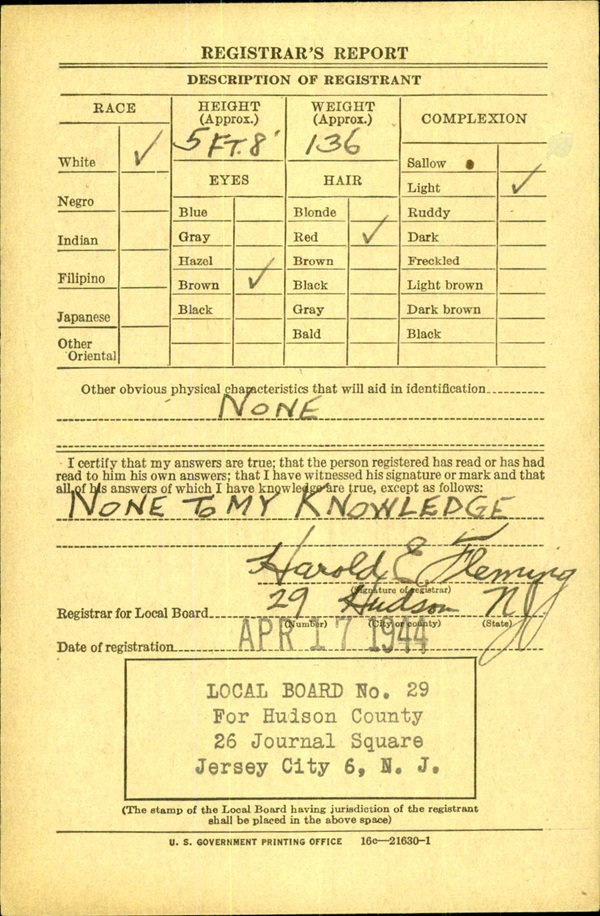 REGISTRAR'S REPORT
DESCRIPTION OF REGISTRANT
RACE
HEIGHT
(Approx.)
WEIGHT
(Approx.)
COMPLEXION
5 FT. 8'
136
White ✓
Sallow
Light ✓
EYES
HAIR
Negro
Blue
Blonde
Ruddy
Indian
Gray
Red ✓
Dark
Hazel
Brown
Freckled
Filipino
Brown ✓
Black
Light brown
Japanese
Black
Gray
Dark brown
Other
Oriental
Bald
Black
Other obvious physical characteristics that will aid in identification
NONE
I certify that my answers are true; that the person registered has read or has had
read to him his own answers; that I have witnessed his signature or mark and that
all of his answers of which I have knowledge are true, except as follows:
NONE TO MY KNOWLEDGE
Harold E Fleming
(Signature of registrar)
Registrar for Local Board 29 Hudson NJ
(Number) (City or county) (State)
Date of registration APR 17 1944
LOCAL BOARD No. 29
For Huison County
26 Journal Square
Jersey City 6, N. J.
(The stamp of the Local Board having jurisdiction of the registrant
shall be placed in the above space)
U. S. GOVERNMENT PRINTING OFFICE 16c—21630-1